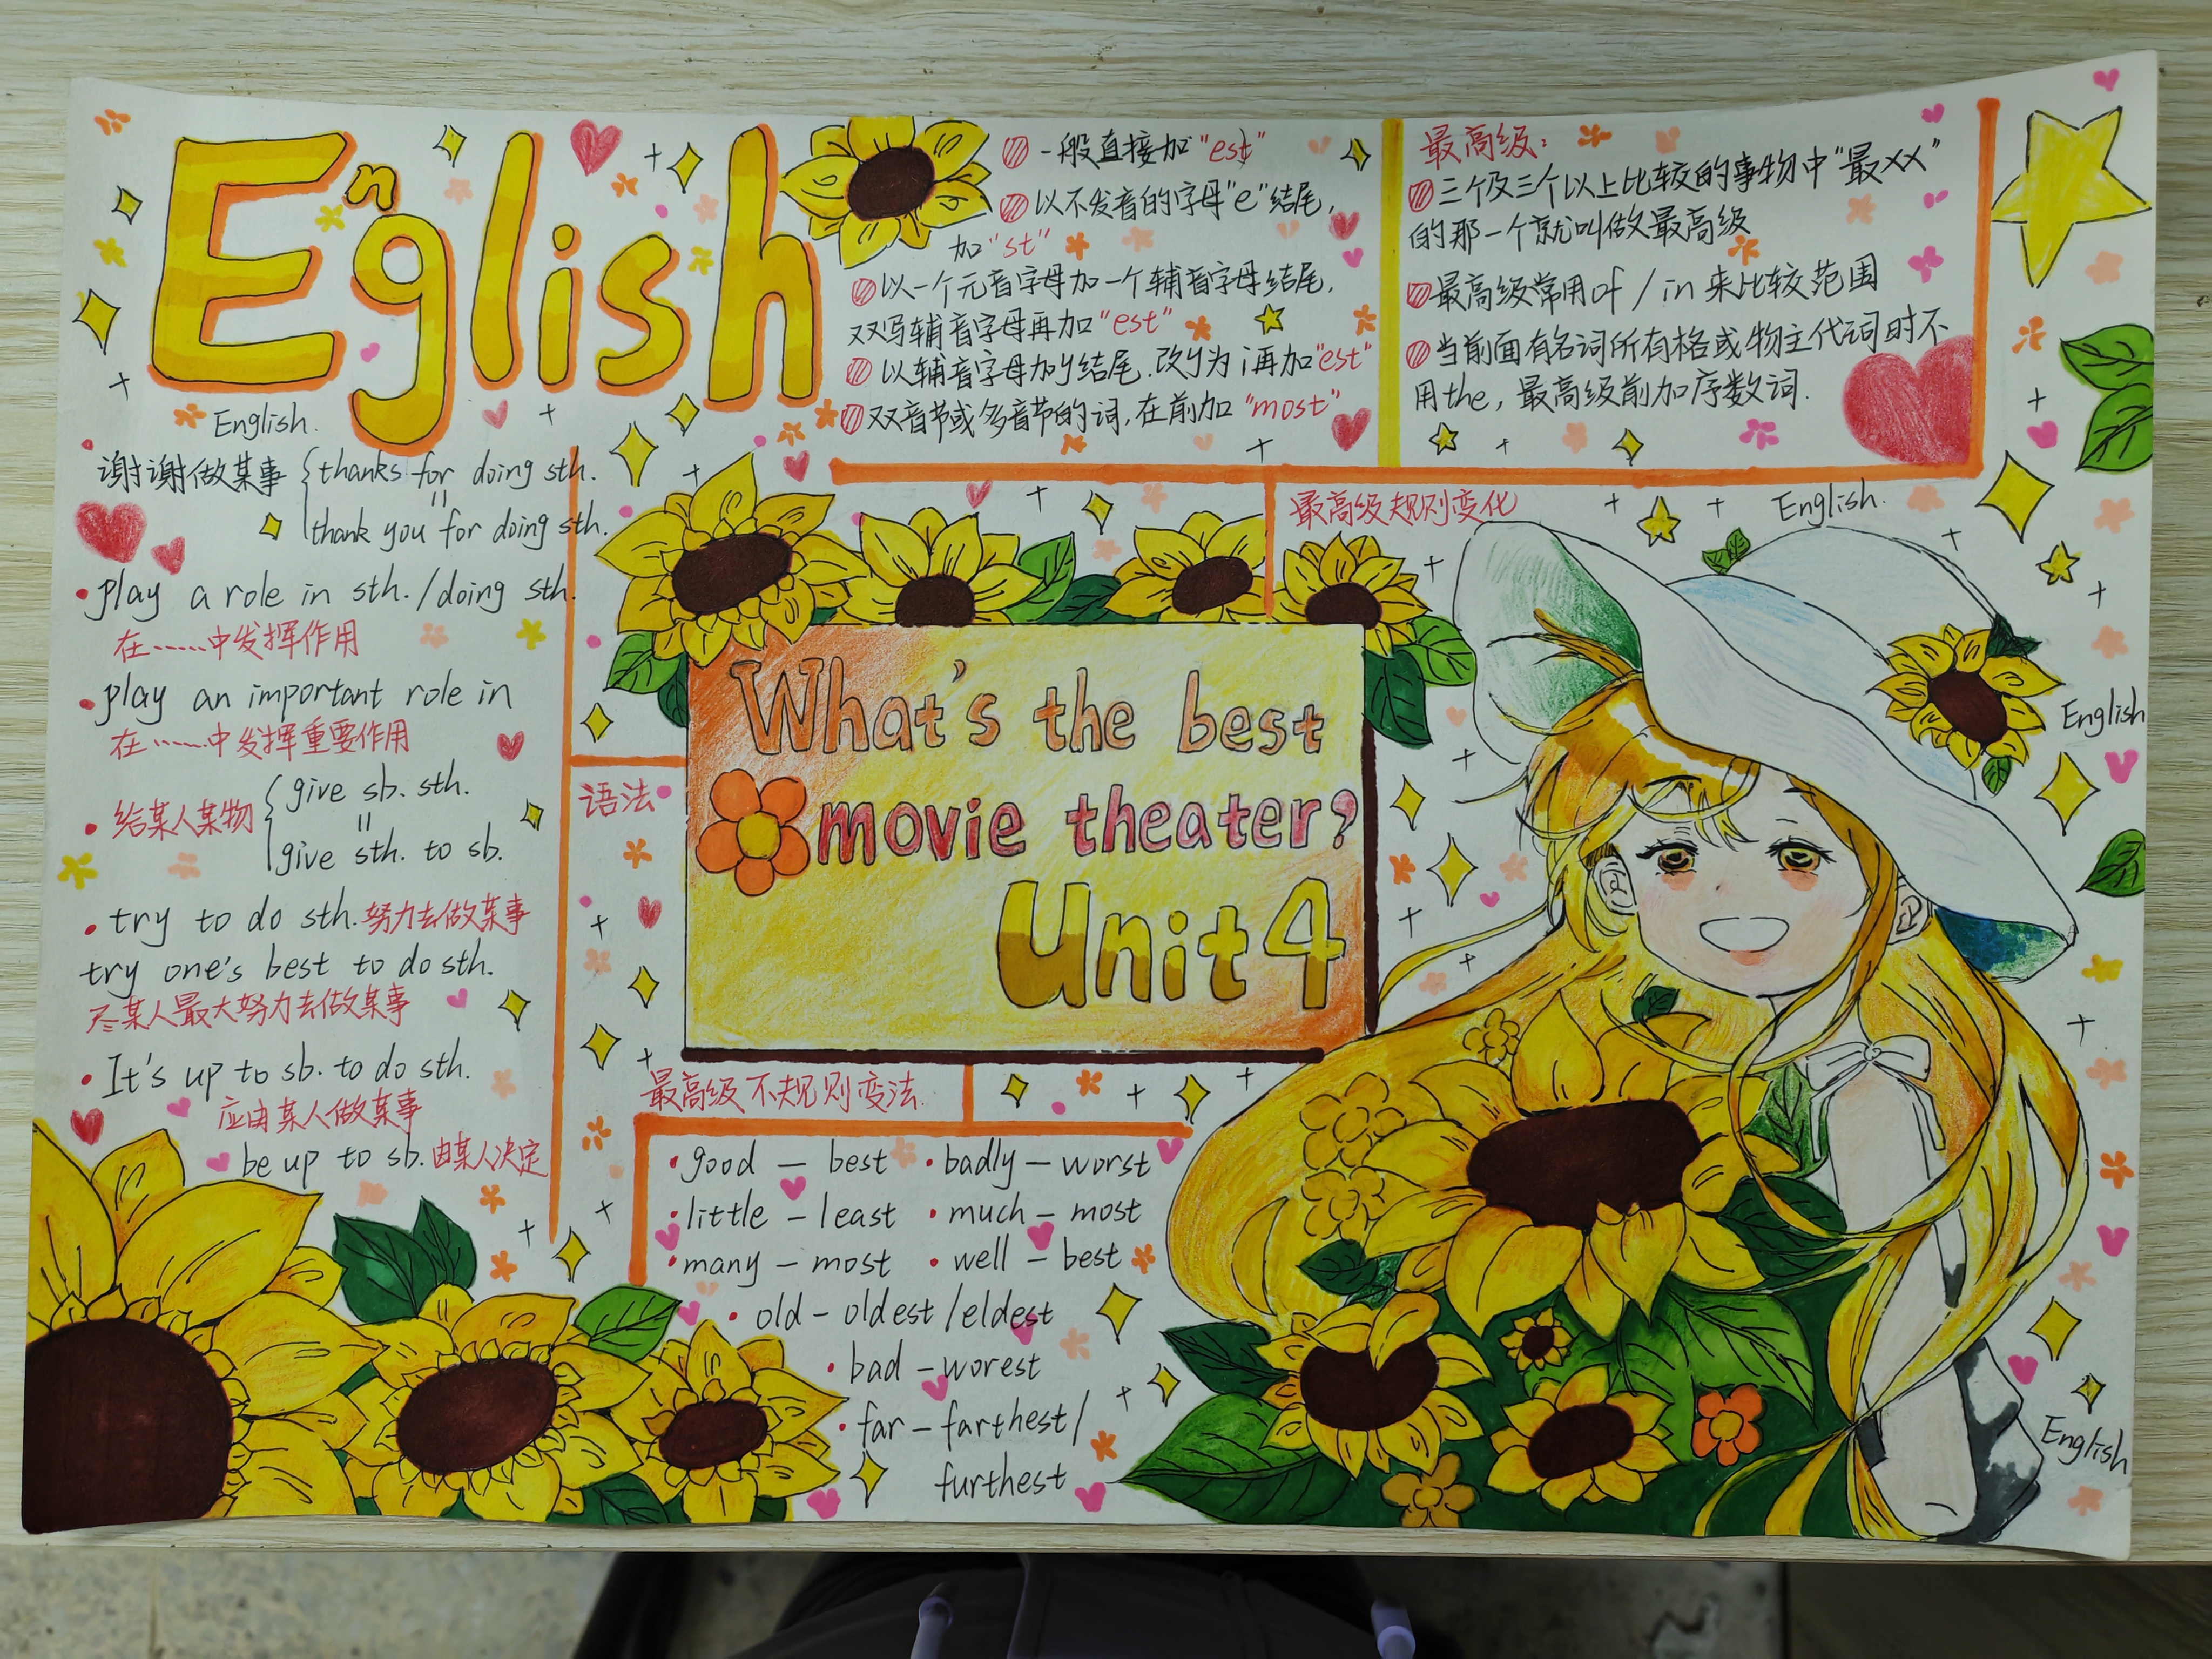 English
English.
谢谢做某事 { thanks for doing sth.
=
thank you for doing sth.
play a role in sth. / doing sth.
在……中发挥作用
play an important role in
在……中发挥重要作用
给某人某物 { give sb. sth.
=
give sth. to sb.
try to do sth. 努力去做某事
try one's best to do sth.
尽某人最大努力去做某事
It's up to sb. to do sth.
应由某人做某事
be up to sb. 由某人决定
一般直接加"est"
以不发音的字母"e"结尾,
加"st"
以一个元音字母加一个辅音字母结尾,
双写辅音字母再加"est"
以辅音字母加y结尾,改y为i再加"est"
双音节或多音节的词,在前加"most"
最高级:
三个及三个以上比较的事物中"最xx"
的那一个就叫做最高级
最高级常用of / in 来比较范围
当前面有名词所有格或物主代词时不
用the, 最高级前加序数词.
最高级规则变化
English.
What's the best
movie theater?
Unit 4
语法
最高级不规则变法.
good — best
badly — worst
little — least
much — most
many — most
well — best
old — oldest / eldest
bad — worest
far — farthest /
furthest
English
English